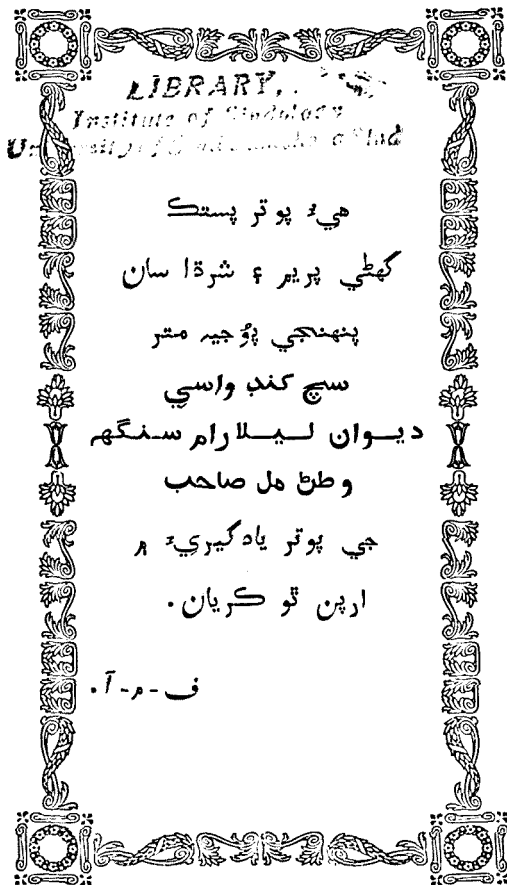 LIBRARY,
Institute of Sindology
هيءُ پوتر پستڪ
گهڻي پريم ۽ شرڌا سان
پنهنجي پوُجيہ متر
سچ کنڊ واسي
ديوان ليلارام سنگهہ
وطڻ مل صاحب
جي پوتر يادگيريءَ ۾
ارپن ٿو ڪريان.
ف-م-آ.